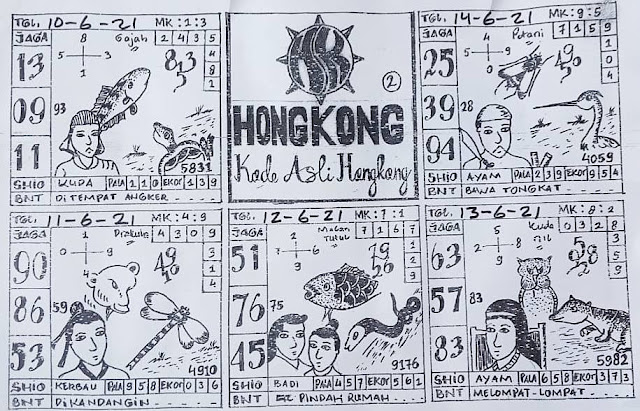 TGL. 10-6-21 MK: 1:3
JAGA
Gajah
2 4 3 5
4
8
2
8
5 3
1
13
09
11
93
5831
SHIO KUDA PALA 2 1 0 EKOR 1 3 9
BNT DI TEMPAT ANGKER
2
HONGKONG
Kode Asli Hongkong
TGL. 14-6-21 MK: 9:5
JAGA
Petani
7 1 5 9
1
0
4
4
5 8
0
25
39
94
28
4059
SHIO AYAM PALA 2 3 9 EKOR 9 5 4
BNT BAWA TONGKAT
TGL. 11-6-21 MK: 4:9
JAGA
Drakula
4 3 0 9
3
1
4
1
0 9
4
90
86
53
59
4910
SHIO KERBAU PALA 9 5 8 EKOR 0 3 6
BNT DIKANDANGIN
TGL. 12-6-21 MK: 7:1
JAGA
Macan Tutul
7 1 6 7
1
2
9
2
7 6
1
51
76
45
75
9176
SHIO BADI PALA 4 5 7 EKOR 5 6 1
BNT PINDAH RUMAH
TGL. 13-6-21 MK: 8:2
JAGA
Kuda nil
0 3 2 8
3
9
5
5
2 9
8
63
57
83
83
5982
SHIO AYAM PALA 6 5 8 EKOR 3 7 3
BNT MELOMPAT-LOMPAT